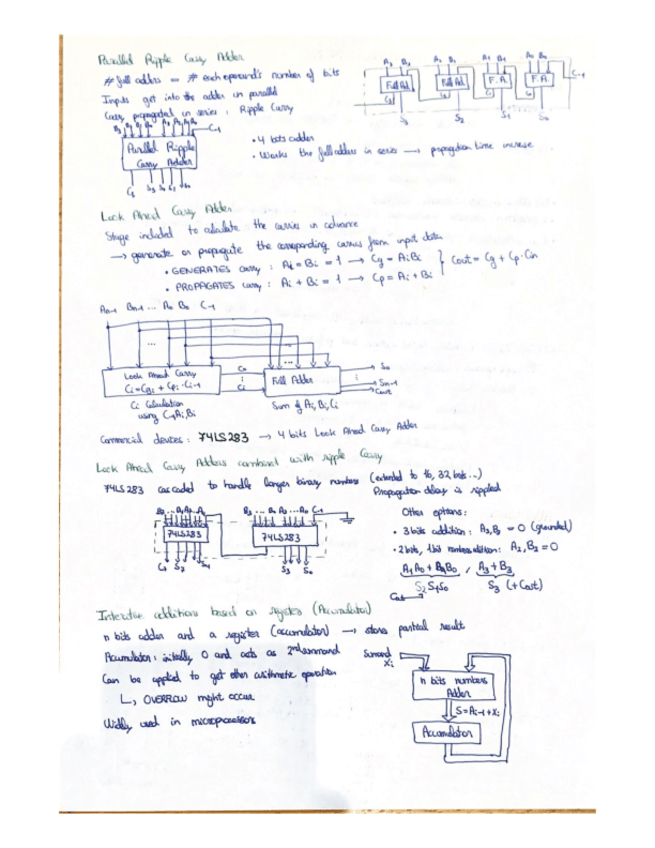 Parallel Ripple Carry Adder
# full adders = # each operand's number of bits
Inputs get into the adder in parallel
Carry propagated in series : Ripple Carry
A3 B3 A2 B2 A1 B1 A0 B0
Full Ad. Full Ad. F.A. F.A. C-1
C3
S3 S2 S1 S0
B3 B2 B1 B0 A3 A2 A1 A0 C-1
Parallel Ripple
Carry Adder
C3 S3 S2 S1 S0
• 4 bits adder
• Works the full adders in series → propagation time increase
Look Ahead Carry Adder
Stage included to calculate the carries in advance
→ generate or propagate the corresponding carries from input data
• GENERATES carry : Ai = Bi = 1 → Cg = AiBi
• PROPAGATES carry : Ai + Bi = 1 → Cp = Ai + Bi
Cout = Cg + Cp · Cin
An-1 Bn-1 ... A0 B0 C-1
... ...
Look Ahead Carry
Ci = Cgi + Cpi · Ci-1
C0
⋮
Ci
Full Adder
S0
⋮
Sn-1
Cout
Ci Calculation
using C-1 Ai, Bi
Sum of Ai, Bi, Ci
Commercial devices : 74LS283 → 4 bits Look Ahead Carry Adder
Look Ahead Carry Adders combined with ripple Carry
74LS283 cascaded to handle larger binary numbers (extended to 16, 32 bits...)
Propagation delay is rippled
74LS283 74LS283
C-1
S3 S0
Other options:
• 3 bits addition : A3, B3 = 0 (grounded)
• 2 bits, 1 bit numbers addition : A2, B2 = 0
A1A0 + B1B0 , A3 + B3
S2S1S0 S3 (+ Cout)
Cout
Iterative additions based on register (Accumulator)
n bits adder and a register (accumulator) → stores partial result
Accumulator : initially 0 and acts as 2nd summand
Can be applied to get other arithmetic operation
↳ OVERFLOW might occur
Widely used in microprocessors
Summand
Xi
n bits numbers
Adder
S = Ai-1 + Xi
Accumulator